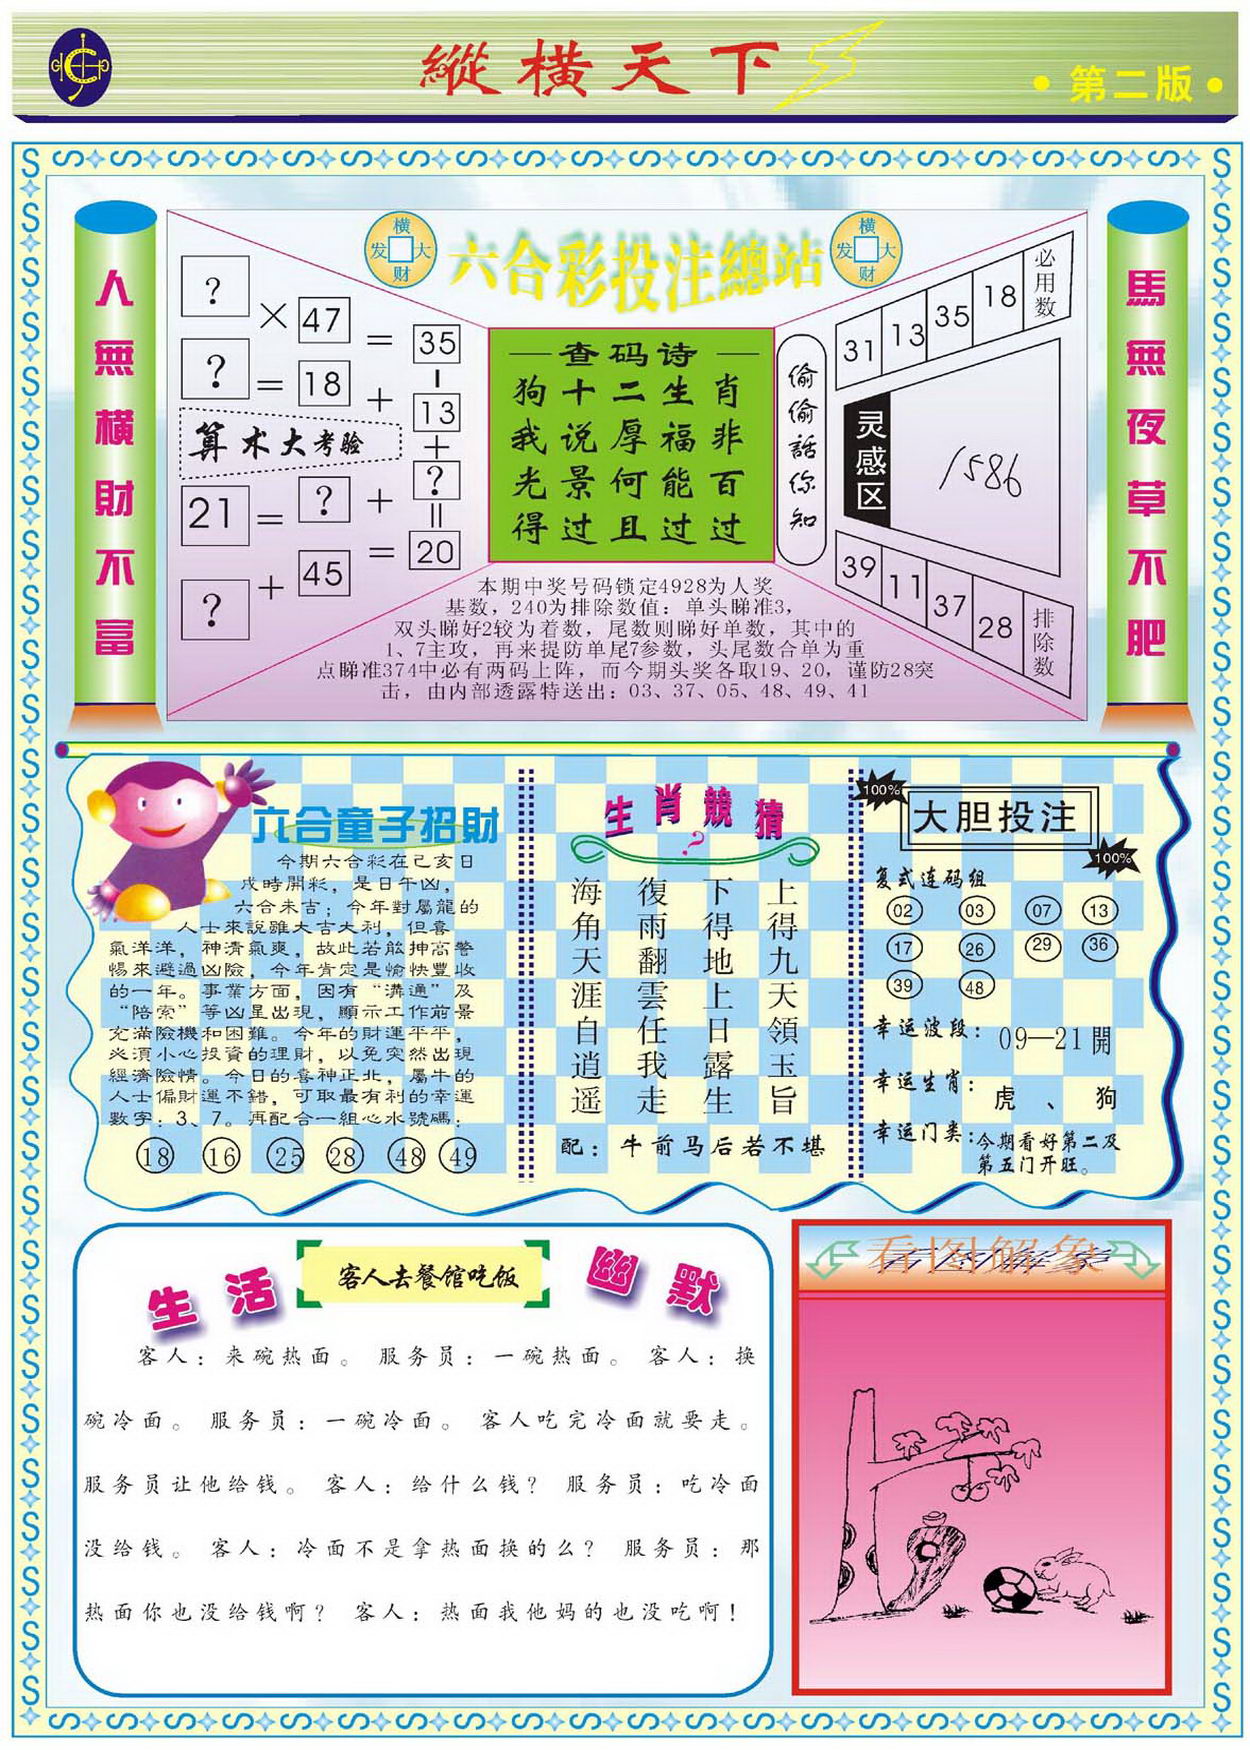 縱橫天下
•第二版•
人無橫財不富
馬無夜草不肥
橫
发 大
财
六合彩投注總站
橫
发 大
财
? × 47 = 35
? = 18 +
-
13
+
算术大考验
21 = ? + ?
=
? + 45 = 20
查码诗
狗十二生肖
我说厚福非
光景何能百
得过且过过
偷偷話你知
31 13 35 18 必用数
灵感区
1586
39 11 37 28 排除数
本期中奖号码锁定4928为人奖
基数，240为排除数值：单头睇准3，
双头睇好2较为着数，尾数则睇好单数，其中的
1、7主攻，再来提防单尾7参数，头尾数合单为重
点睇准374中必有两码上阵，而今期头奖各取19、20，谨防28突
击，由内部透露特送出：03、37、05、48、49、41
六合童子招財
今期六合彩在己亥日
戌時開彩，是日午凶，
六合未吉；今年對屬龍的
人士來說雖大吉大利，但喜
氣洋洋，神清氣爽，故此若能抻高警
惕來避過凶險，今年肯定是愉快豐收
的一年。事業方面，因有“溝通”及
“陪索”等凶星出現，顯示工作前景
充滿險機和困難。今年的財運平平，
必須小心投資的理財，以免突然出現
經濟險情。今日的喜神正北，屬牛的
人士偏財運不錯，可取最有利的幸運
數字：3、7。再配合一組心水號碼：
18 16 25 28 48 49
生肖競猜
?
上得九天領玉旨
下得地上日露生
復雨翻雲任我走
海角天涯自逍遥
配：牛前马后若不堪
100%
大胆投注
100%
复式连码组
02 03 07 13
17 26 29 36
39 48
幸运波段：09—21開
幸运生肖：虎、狗
幸运门类：今期看好第二及
第五门开旺。
生活
客人去餐馆吃饭
幽默
客人：来碗热面。 服务员：一碗热面。 客人：换
碗冷面。 服务员：一碗冷面。 客人吃完冷面就要走。
服务员让他给钱。 客人：给什么钱？ 服务员：吃冷面
没给钱。 客人：冷面不是拿热面换的么？ 服务员：那
热面你也没给钱啊？ 客人：热面我他妈的也没吃啊！
看图解象